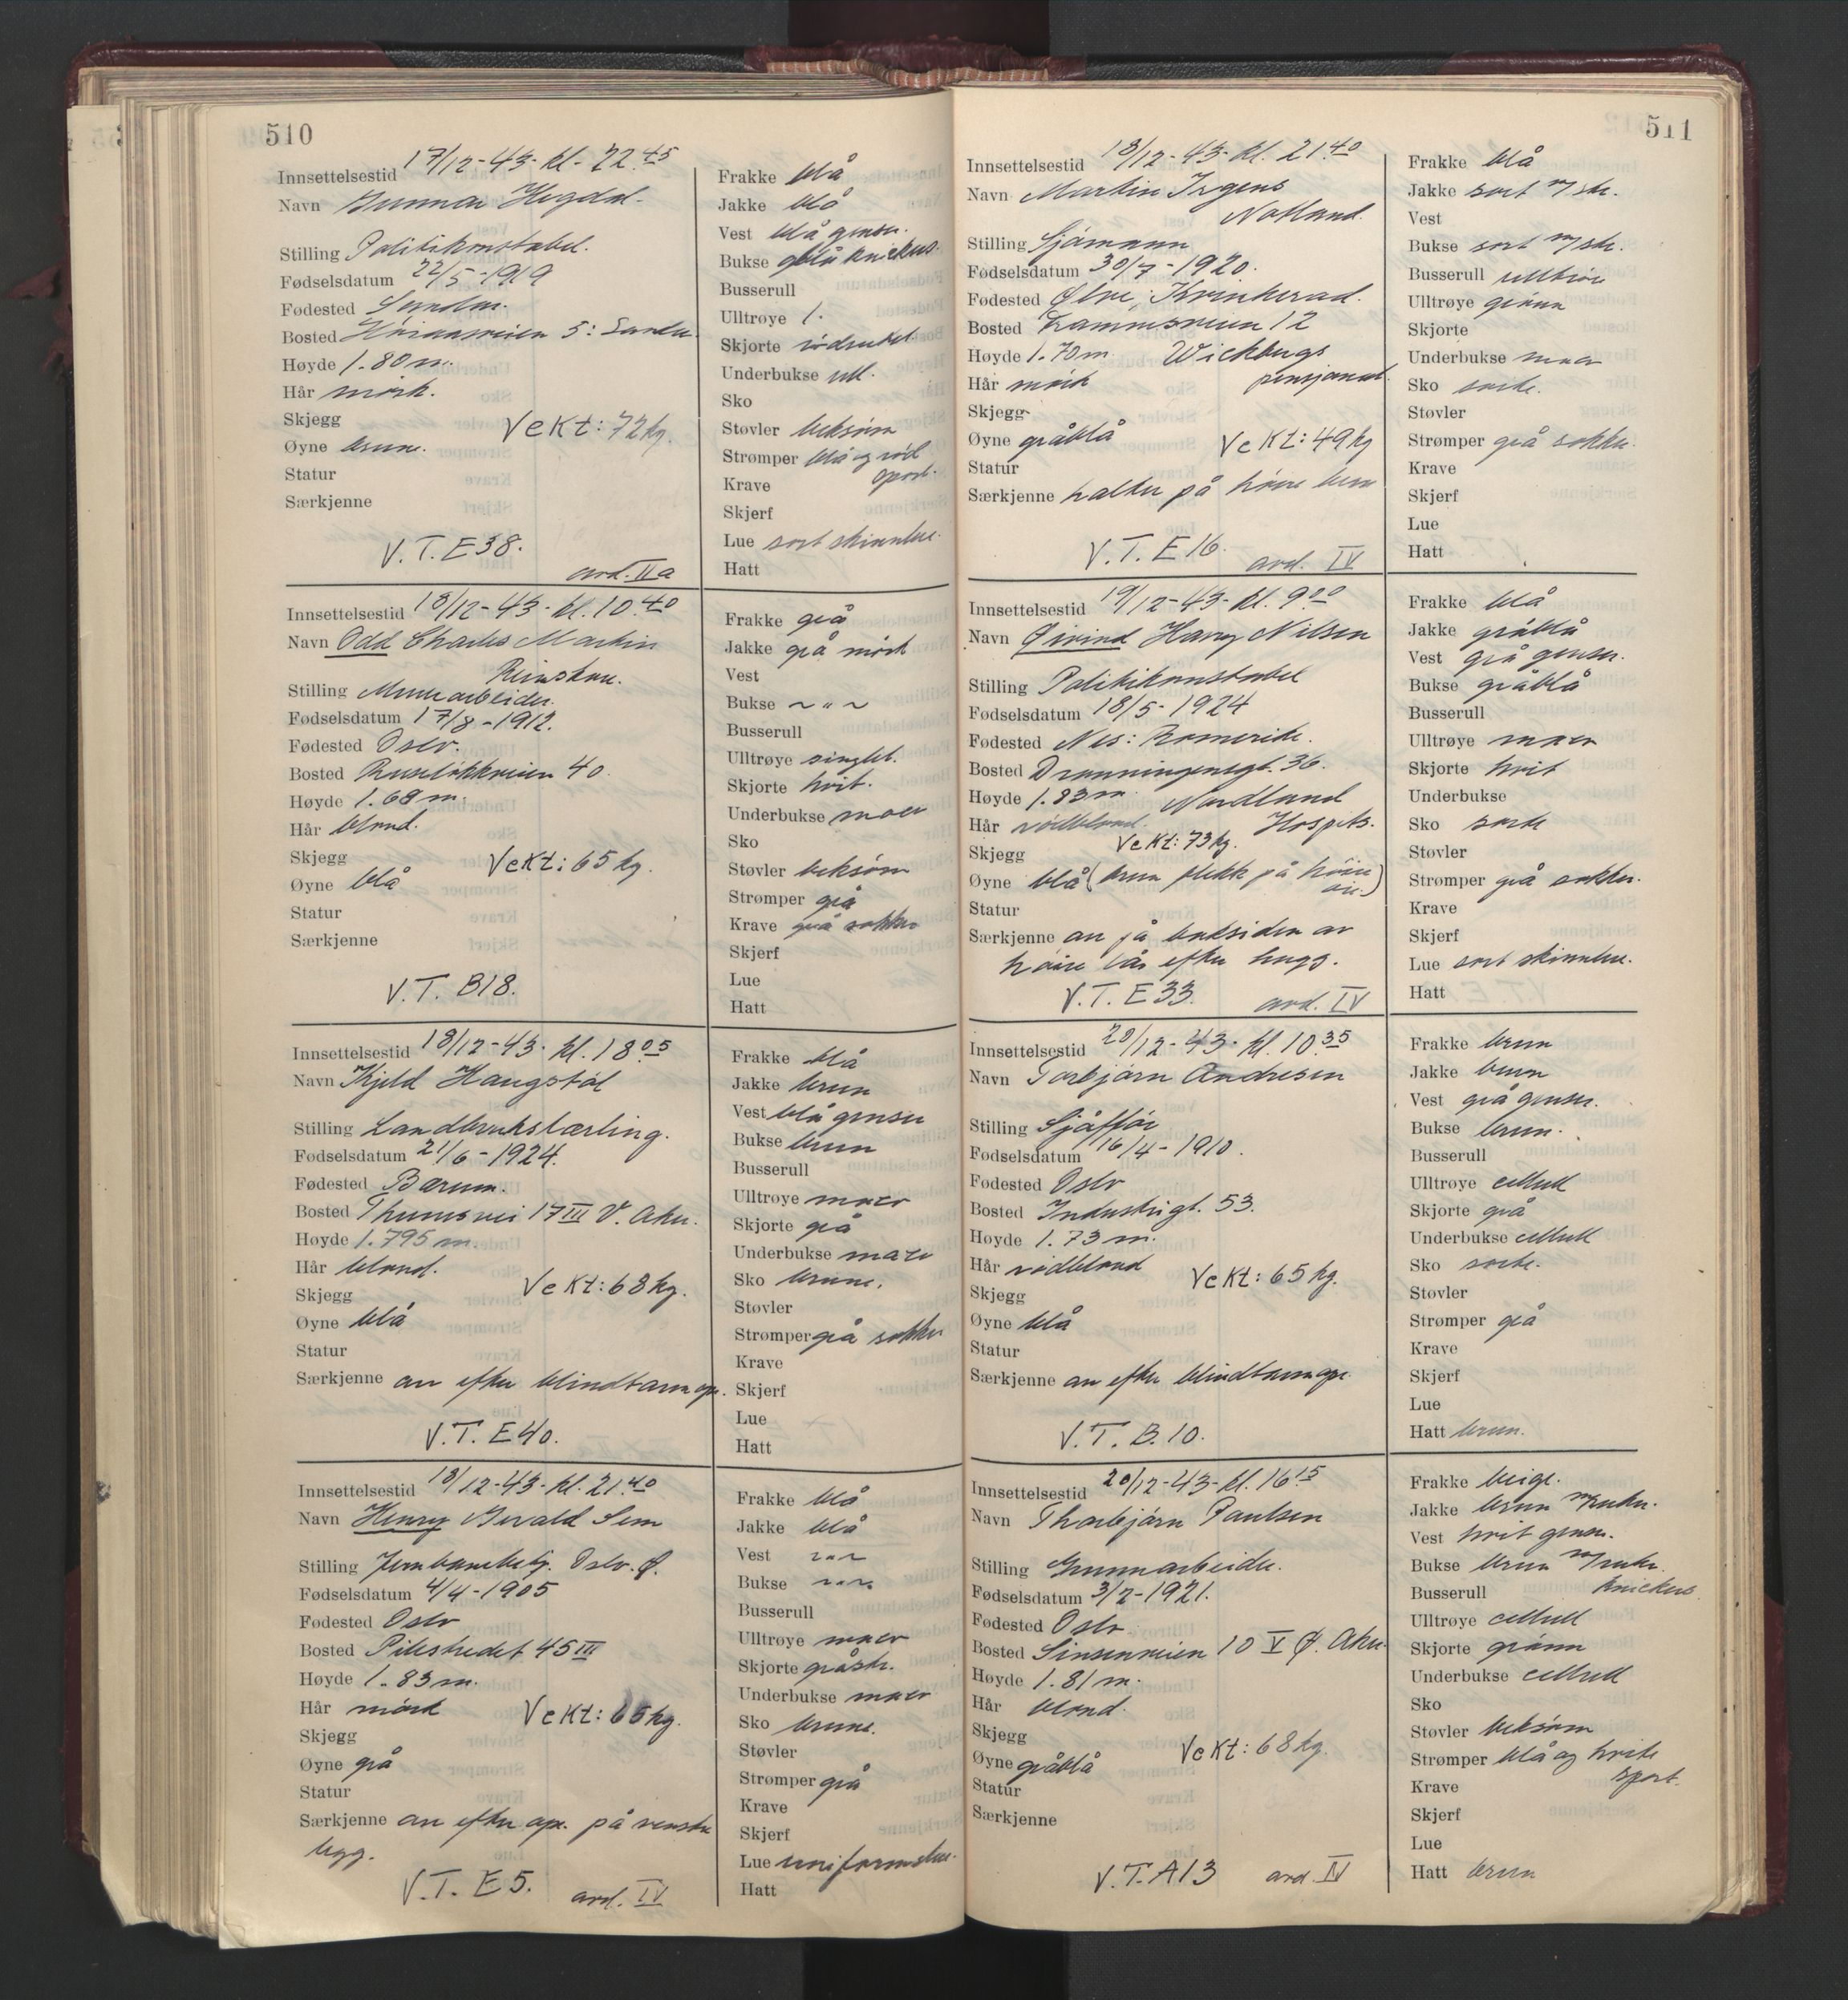 510
Innsettelsestid 17/12-43- kl. 22.45
Navn Gunnar Hegdal.
Stilling Politikonstabel.
Fødselsdatum 22/5-1919
Fødested
Bosted 5:
Høyde 1.80 m.
Hår mørk.
Skjegg
Vekt: 72 kg.
Øyne brune.
Statur
Særkjenne
V.T. E 38.
avd. II a
Frakke blå
Jakke blå
Vest blå genser.
Bukse blå knickers.
Busserull
Ulltrøye 1.
Skjorte rødrutet.
Underbukse ull.
Sko
Støvler beksøm
Strømper blå og rød
sport.
Krave
Skjerf
Lue sort skinnlue.
Hatt
Innsettelsestid 18/12-43- kl. 10.40
Navn Odd Charles Martin
Stilling Murerarbeider.
Fødselsdatum 17/8-1912.
Fødested Oslo.
Bosted Ruseløkkveien 40.
Høyde 1.68 m.
Hår blond.
Skjegg
Vekt: 65 kg.
Øyne blå
Statur
Særkjenne
V.T. B18.
Frakke grå
Jakke grå mørk
Vest
Bukse ~ " ~
Busserull
Ulltrøye singlet.
Skjorte hvit.
Underbukse maco
Sko
Støvler beksøm
Strømper grå
Krave grå sokker
Skjerf
Lue
Hatt
Innsettelsestid 18/12-43- kl. 18.05
Navn Kjeld Haugstøl
Stilling Landbrukslærling.
Fødselsdatum 21/6-1924.
Fødested Bærum.
Bosted Thunesvei 17 III V. Aker.
Høyde 1.795 m.
Hår blond.
Skjegg
Vekt: 68 kg.
Øyne blå
Statur
Særkjenne arr efter blindtarm op.
V.T. E40.
Frakke blå
Jakke brun
Vest blå genser
Bukse brun
Busserull
Ulltrøye maco
Skjorte grå
Underbukse maco
Sko brune.
Støvler
Strømper grå sokker
Krave
Skjerf
Lue
Hatt
Innsettelsestid 18/12-43- kl. 21.40
Navn Henry Bervald Sem
Stilling Jernbanebetj. Oslo. Ø.
Fødselsdatum 4/4-1905
Fødested Oslo
Bosted Pilestredet 45 III
Høyde 1.83 m.
Hår mørk
Vekt: 65 kg.
Skjegg
Øyne grå
Statur
Særkjenne arr efter op. på venstre
legg.
V.T. E 5.
avd. IV
Frakke blå
Jakke blå
Vest ~ " ~
Bukse ~ " ~
Busserull
Ulltrøye maco
Skjorte gråstr.
Underbukse maco
Sko brune.
Støvler
Strømper grå
Krave
Skjerf
Lue uniformslue.
Hatt
511
Innsettelsestid 18/12-43- kl. 21.40
Navn Martin Irgens
Natland.
Stilling Sjømann
Fødselsdatum 30/7-1920.
Fødested Ølve, Kvinherad.
Bosted 12
Høyde 1.70 m Wickbergs
Hår mørk pensjonat.
Skjegg
Øyne gråblå
Vekt: 49 kg
Statur
Særkjenne halter på høire ben
V.T. E 16.
avd. IV
Frakke blå
Jakke sort m/str.
Vest
Bukse sort m/str.
Busserull ulltrøie
Ulltrøye grønn
Skjorte
Underbukse maco
Sko sorte.
Støvler
Strømper grå sokker.
Krave
Skjerf
Lue
Hatt
Innsettelsestid 19/12-43- kl. 9.00
Navn Øivind Harry Nilsen
Stilling Politikonstabel
Fødselsdatum 18/5-1924
Fødested Nes: Romerike.
Bosted Dronningensgt. 36.
Høyde 1.83 m. Nordland
Hår rødblond. Hospits.
Skjegg
Vekt: 73 kg.
Øyne blå (brun flekk på høire
øie.)
Statur
Særkjenne arr på baksiden av
høire lår efter hugg.
V.T. E 33.
avd. IV
Frakke blå
Jakke gråblå
Vest grå genser.
Bukse gråblå
Busserull
Ulltrøye maco
Skjorte hvit
Underbukse
Sko sorte
Støvler
Strømper grå sokker.
Krave
Skjerf
Lue sort skinnlue.
Hatt
Innsettelsestid 20/12-43- kl. 10.35
Navn Torbjørn Andresen
Stilling Sjåffør
Fødselsdatum 16/4-1910.
Fødested Oslo
Bosted Industrigt. 53.
Høyde 1.73 m.
Hår rødblond
Vekt: 65 kg.
Skjegg
Øyne blå
Statur
Særkjenne arr efter blindtarmop.
V.T. B.10.
Frakke brun
Jakke brun
Vest grå genser.
Bukse brun.
Busserull
Ulltrøye cellull
Skjorte grå
Underbukse cellull
Sko sorte.
Støvler
Strømper grå
Krave
Skjerf
Lue
Hatt brun.
Innsettelsestid 20/12-43- kl. 16.15
Navn Thorbjørn Paulsen
Stilling Grunnarbeider.
Fødselsdatum 3/2-1921.
Fødested Oslo
Bosted Sinsenveien 10 V Ø. Aker
Høyde 1.81 m.
Hår blond.
Skjegg
Vekt: 68 kg.
Øyne gråblå
Statur
Særkjenne
V.T. A13
avd. IV
Frakke beige.
Jakke brun m/ruter.
Vest hvit genser.
Bukse brun m/ruter
knickers
Busserull
Ulltrøye cellull
Skjorte grønn
Underbukse cellull
Sko
Støvler beksøm
Strømper blå og hvite
sport.
Krave
Skjerf
Lue
Hatt brun